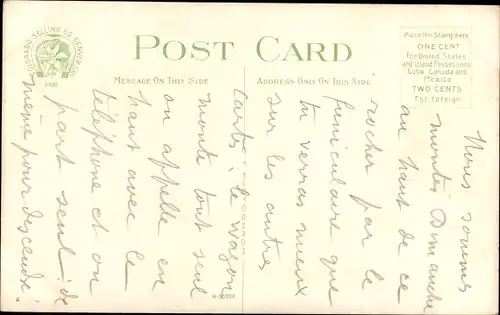 COLORADO SELLING CO. DENVER, COLO.
POST CARD
MESSAGE ON THIS SIDE
ADDRESS ONLY ON THIS SIDE
Place the Stamp here
ONE CENT
for United States
and Island Possessions
Cuba, Canada and
Mexico
TWO CENTS
For foreign
Nous sommes
montés Dimanche
au haut de ce
rocher par le
funiculaire que
tu verras mieux
sur les autres
cartes; le wagon
monte tout seul
on appelle en
haut avec le
téléphone et on
part seul! de
même pour descendre!